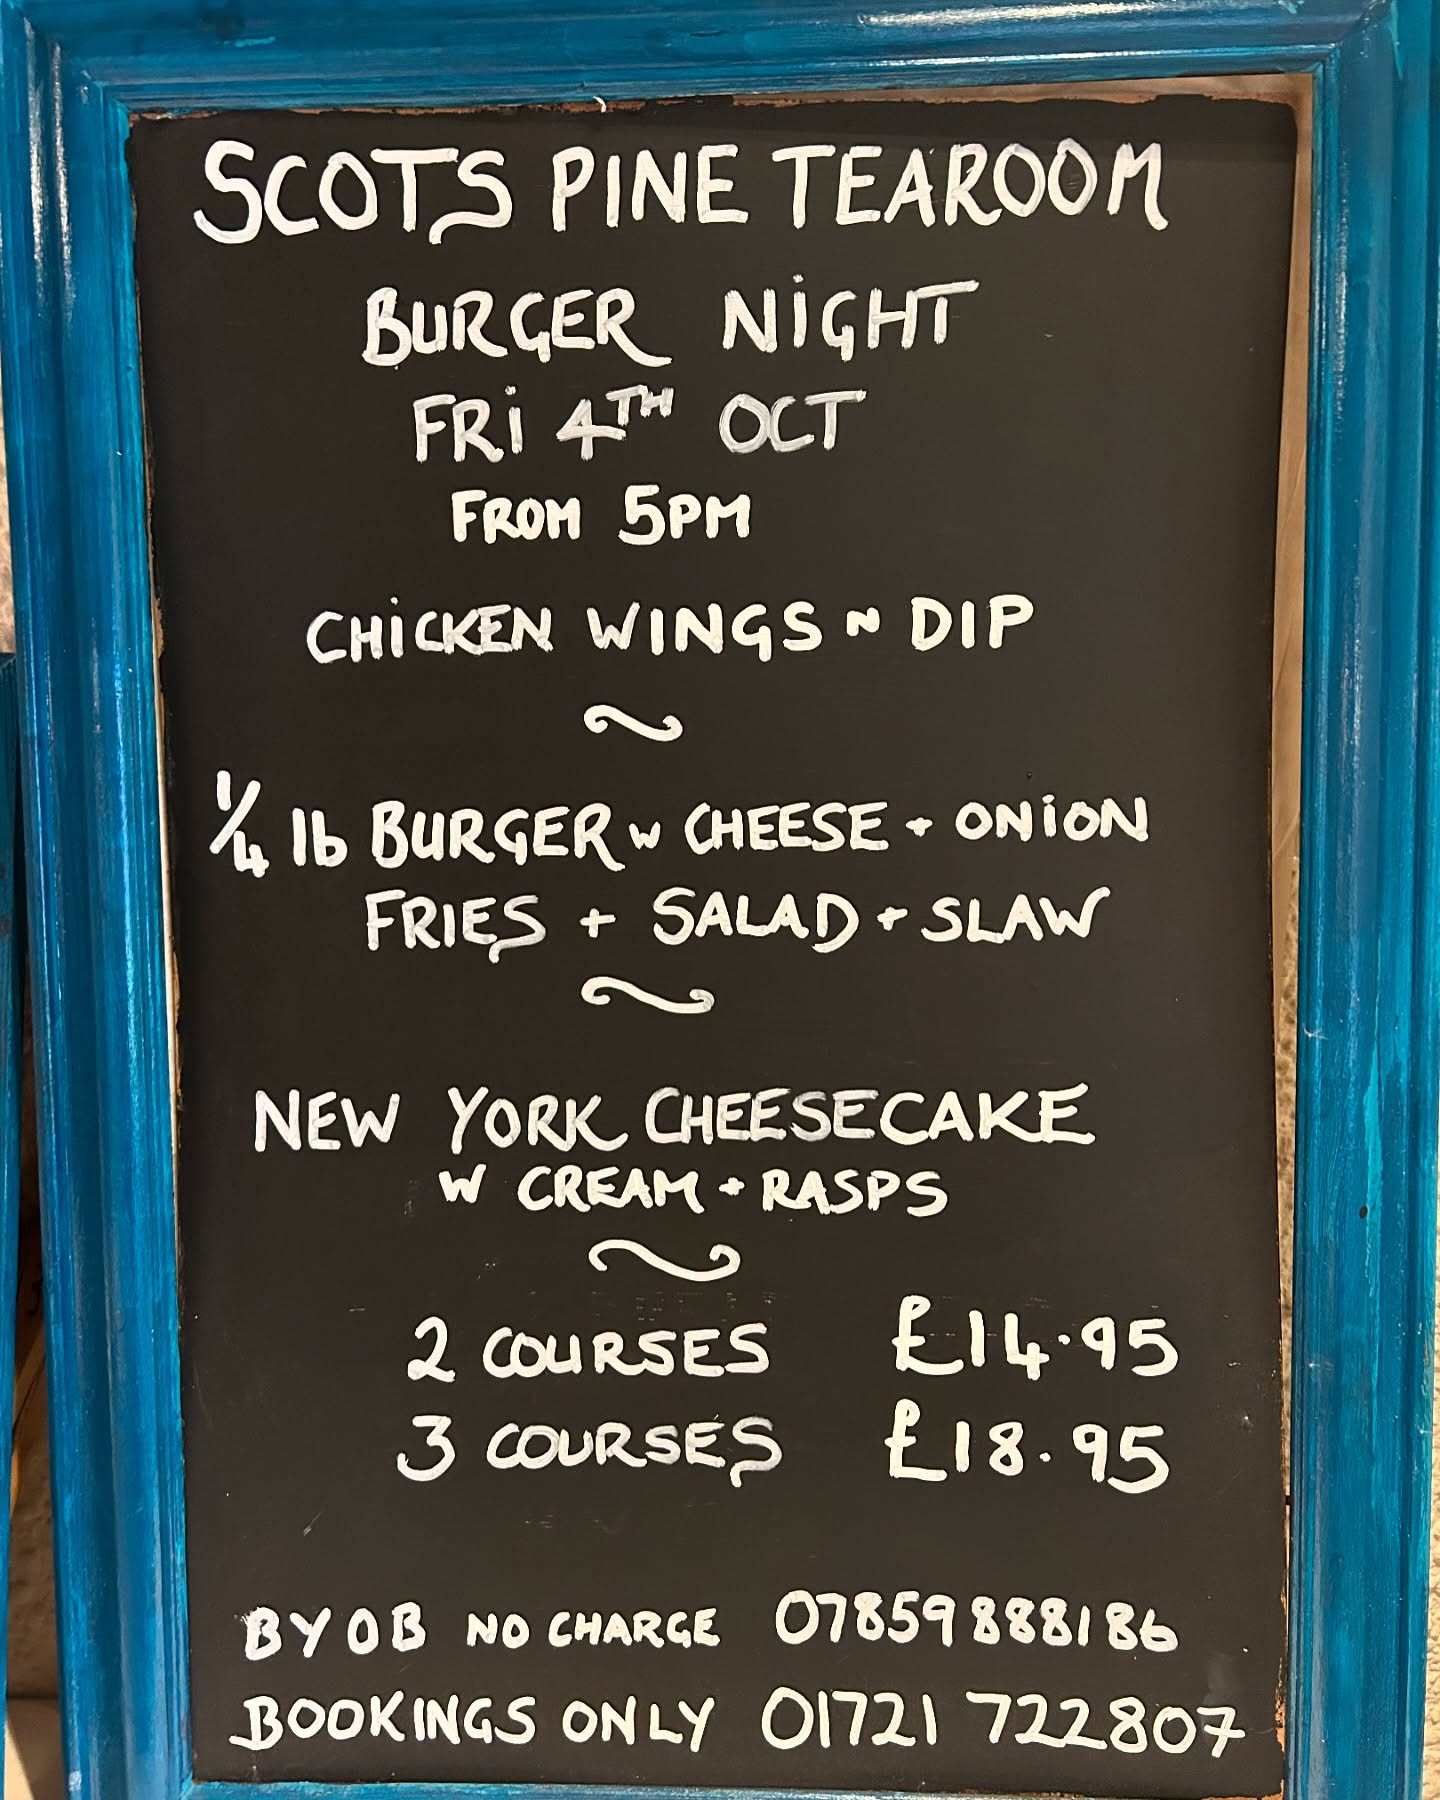 SCOTS PINE TEAROOM
BURGER NIGHT
FRI 4TH OCT
FROM 5PM
CHICKEN WINGS N DIP
~
1/4 lb BURGER W CHEESE + ONION
FRIES + SALAD + SLAW
~
NEW YORK CHEESECAKE
W CREAM + RASPS
~
2 COURSES £14.95
3 COURSES £18.95
BYOB NO CHARGE 07859888186
BOOKINGS ONLY 01721 722807